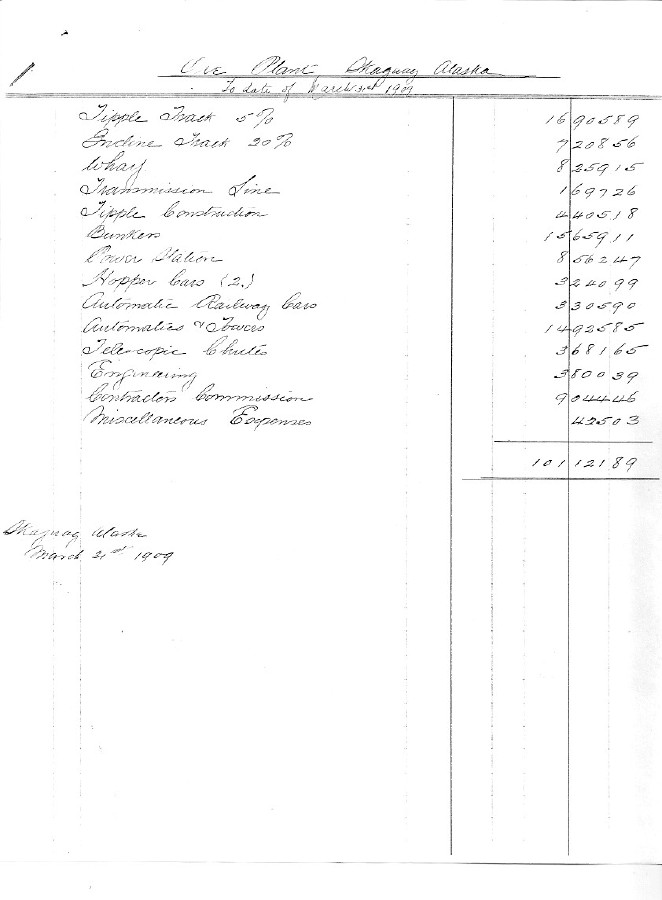 Ore Plant, Skaguay Alaska
To date of March 31st 1909
Tipple Track 5% 1690589
Incline Track 20% 720856
Wharf 825915
Transmission Line 169726
Tipple Construction 440518
Bunkers 1565911
Power Station 856247
Hopper Cars (2.) 324099
Automatic Railway Cars 330590
Automatics & Towers 1492585
Telescopic Chutes 368165
Engineering 380039
Contractors Commission 904446
Miscellaneous Expenses 42503
10112189
Skaguay Alaska
March 31st 1909